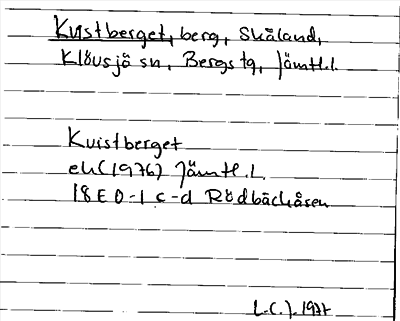 Kvistberget, berg, Skåland,
Klövsjö sn, Bergs tg, Jämtl.l.
Kvistberget
ek(1976) Jämtl.L.
18E 0-1 c-d Rödbäckåsen
L.C.J. 1977